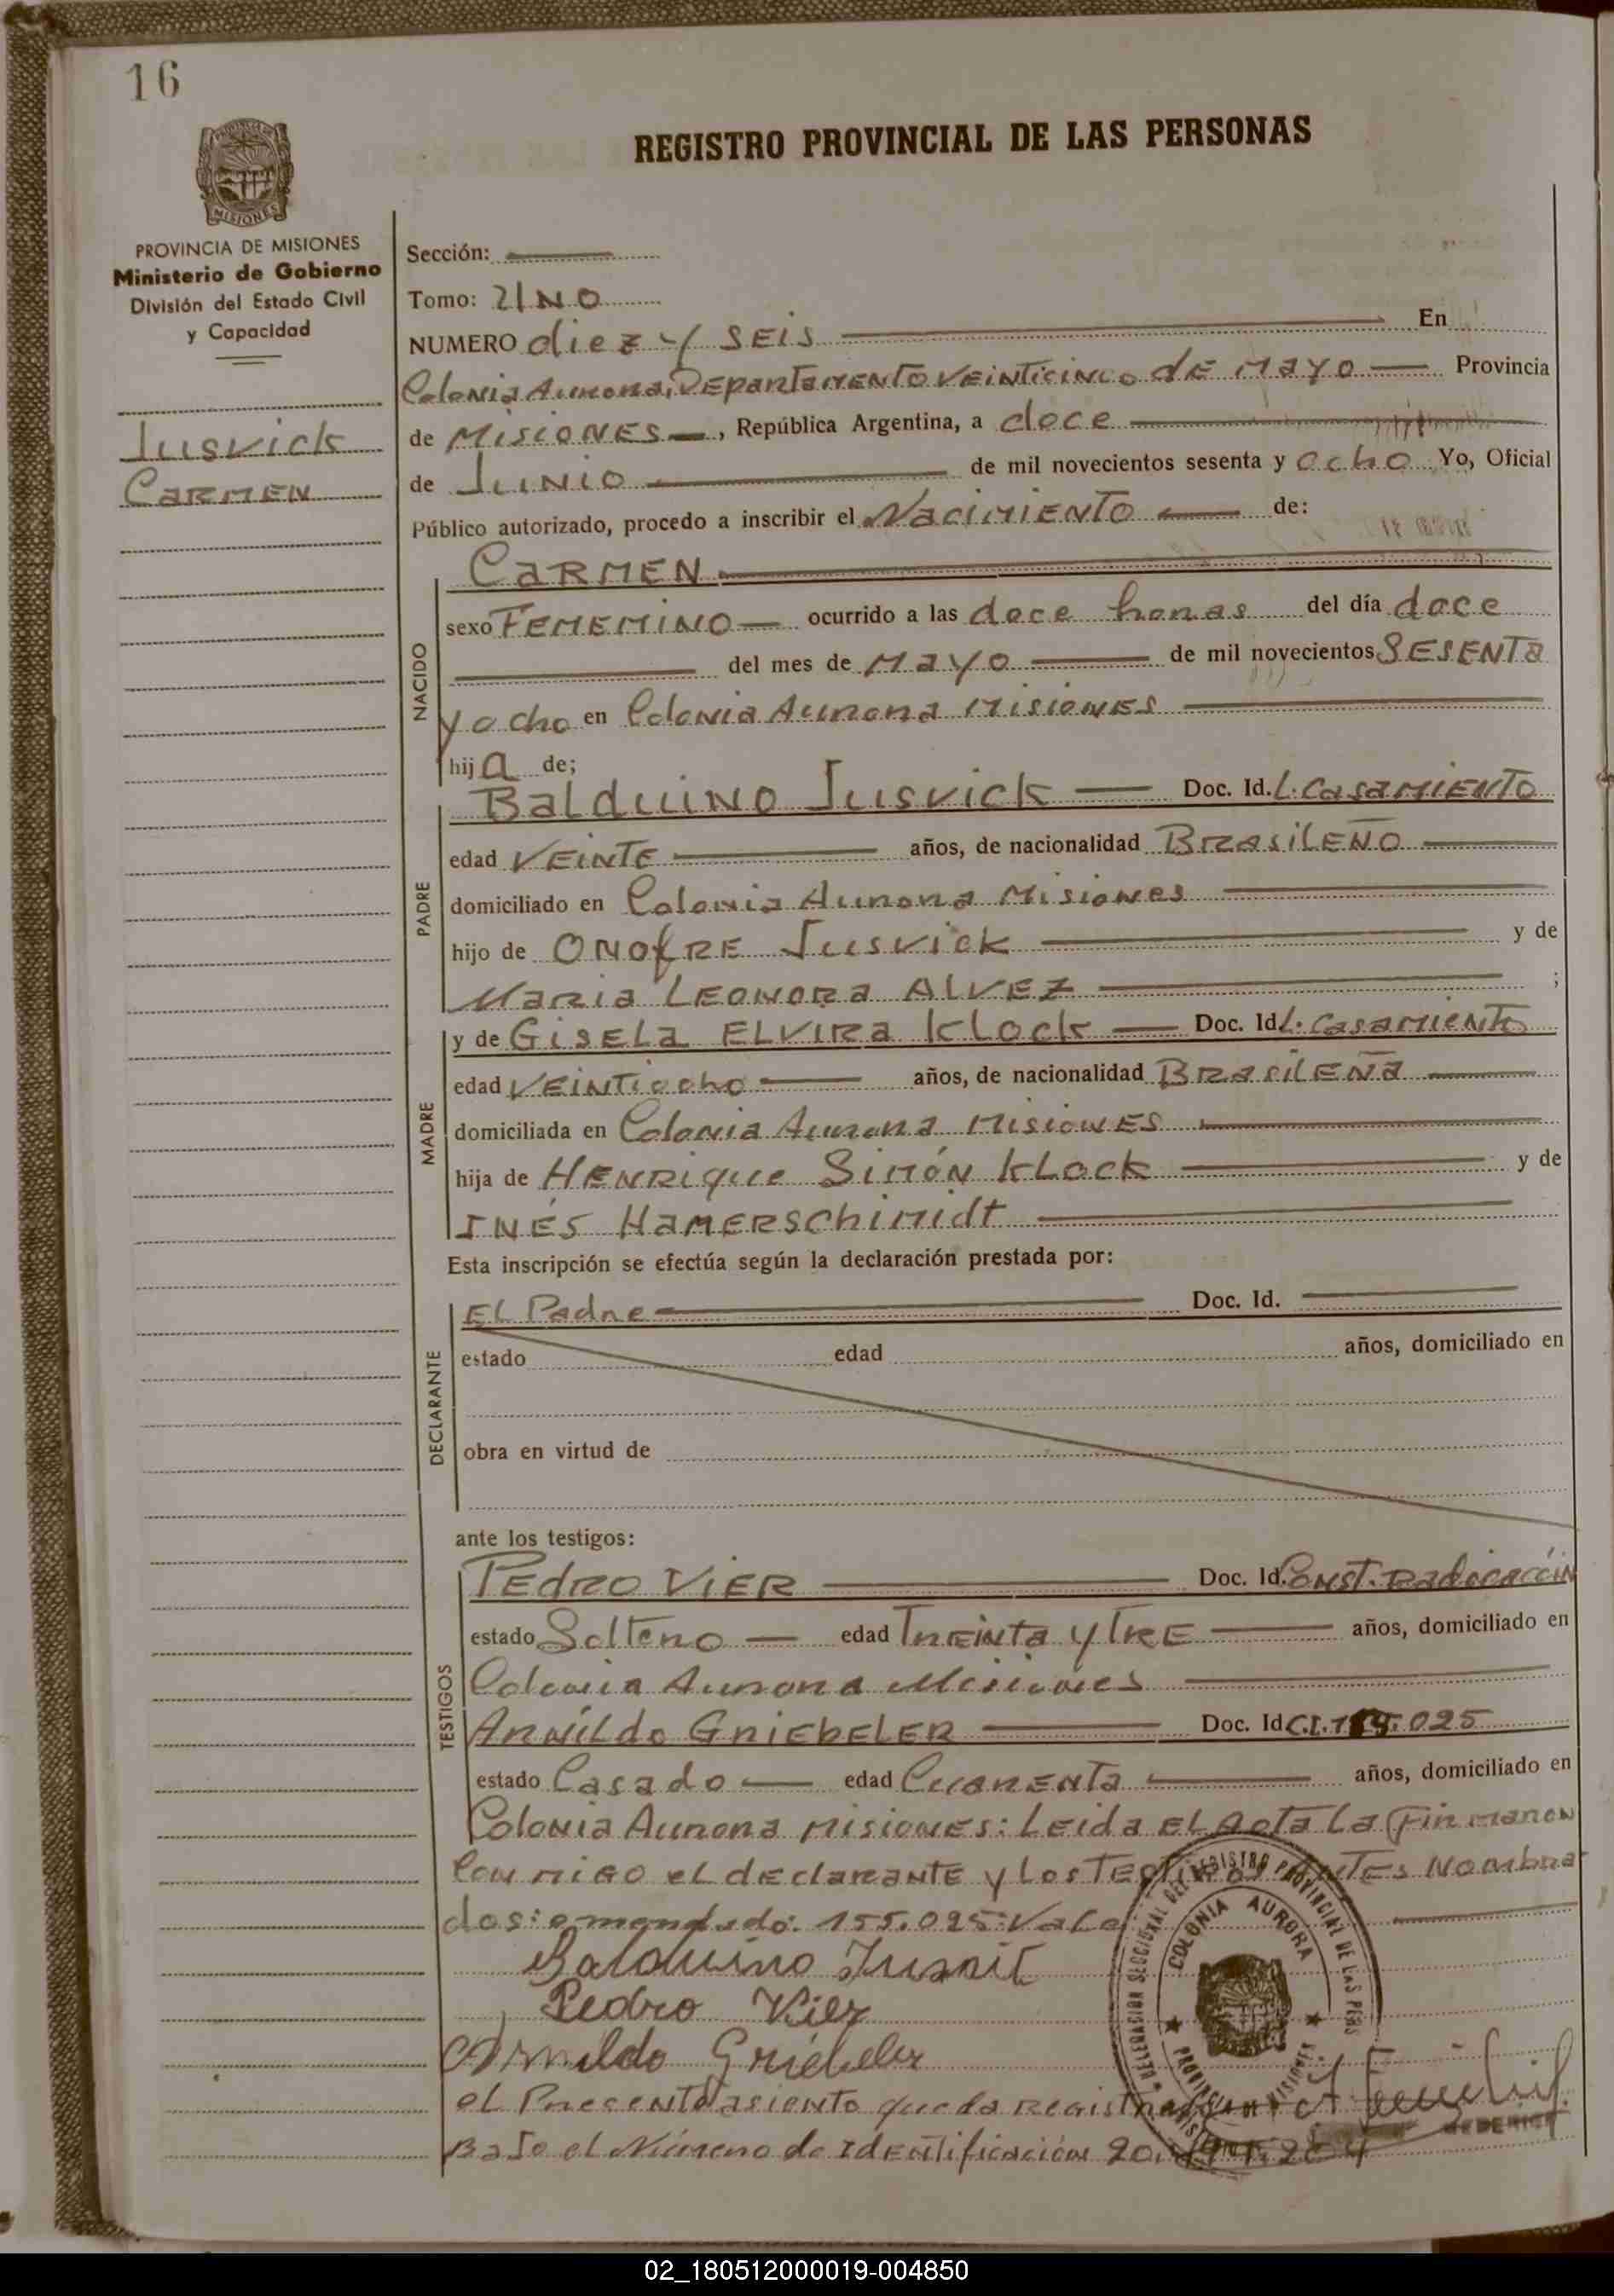 16
REGISTRO PROVINCIAL DE LAS PERSONAS
MISIONES
PROVINCIA DE MISIONES
Ministerio de Gobierno
División del Estado Civil
y Capacidad
Jusvick
Carmen
Sección:
Tomo: UNO
NUMERO diez y SEIS En
Colonia Aurora, Departamento Veinticinco de Mayo Provincia
de Misiones, República Argentina, a doce
de Junio de mil novecientos sesenta y ocho Yo, Oficial
Público autorizado, procedo a inscribir el Nacimiento de:
NACIDO
CARMEN
sexo Fememino ocurrido a las doce horas del día doce
del mes de Mayo de mil novecientos SESENTA
y ocho en Colonia Aurora Misiones
hija de;
PADRE
Balduino Jusvick Doc. Id. L. Casamiento
edad VEINTE años, de nacionalidad Brasileño
domiciliado en Colonia Aurora Misiones
hijo de Onofre Jusvick y de
Maria Leonora Alvez ;
MADRE
y de Gisela Elvira Klock Doc. Id L. Casamiento
edad Veintiocho años, de nacionalidad Brasileña
domiciliada en Colonia Aurora Misiones
hija de Henrique Simón Klock y de
Inés Hamerschimidt
Esta inscripción se efectúa según la declaración prestada por:
DECLARANTE
El Padre Doc. Id.
estado edad años, domiciliado en
obra en virtud de
ante los testigos:
TESTIGOS
Pedro Vier Doc. Id. Const. Radicación
estado Soltero edad Treinta y Tre años, domiciliado en
Colonia Aurora Misiones
Arnildo Griebeler Doc. Id C.I. 025
estado Casado edad Cuarenta años, domiciliado en
Colonia Aurora Misiones: Leida El Acta La Firmaron
Conmigo el declarante y los Testigos antes Nombra
dos: emendado: 155.025: Vale
Balduino Jusvic
Pedro Vier
Arnildo Griebeler
el Presente asiento queda Registrado
Bajo el Número de Identificación 20.
DELEGACION SECCIONAL DEL REGISTRO PROVINCIAL DE LAS PERS
COLONIA AURORA
PROVINCIA DE MISIONES
FEDERICO
02_180512000019-004850